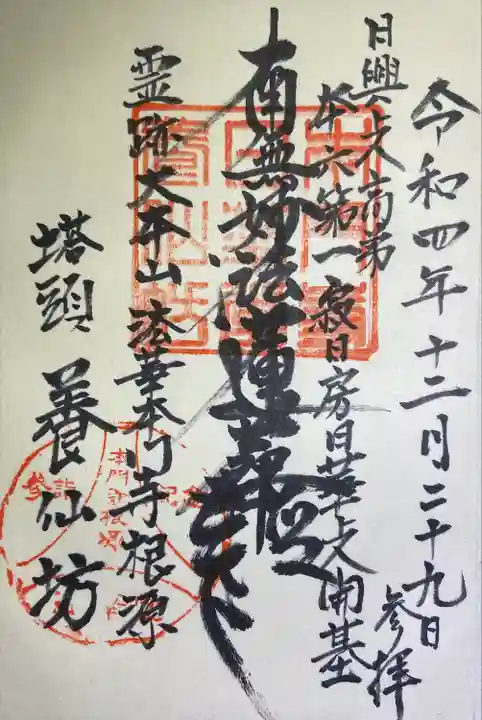 令和四年十二月二十九日
参拝
日興上人高弟
本六第一寂日房日華上人開基
南無妙法蓮華経
霊跡 大本山 法華本門寺根源
塔頭 養仙坊